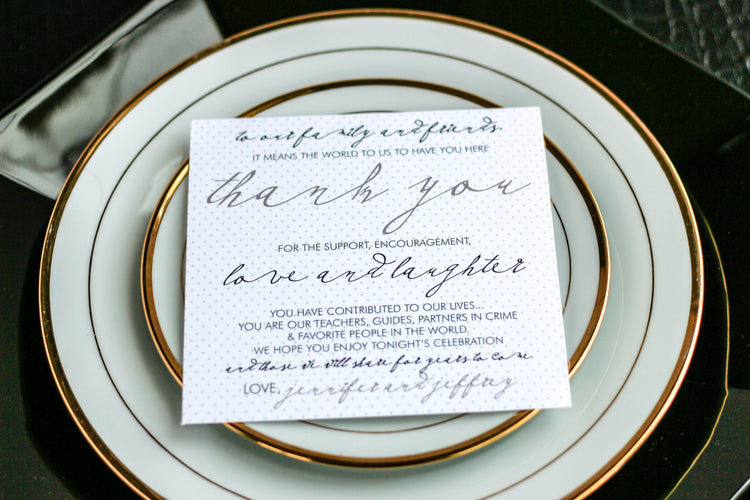 to our family and friends,
IT MEANS THE WORLD TO US TO HAVE YOU HERE
thank you
FOR THE SUPPORT, ENCOURAGEMENT,
love and laughter
YOU HAVE CONTRIBUTED TO OUR LIVES...
YOU ARE OUR TEACHERS, GUIDES, PARTNERS IN CRIME
& FAVORITE PEOPLE IN THE WORLD.
WE HOPE YOU ENJOY TONIGHT'S CELEBRATION
and those we will share for years to come
LOVE, jennifer and jeffrey